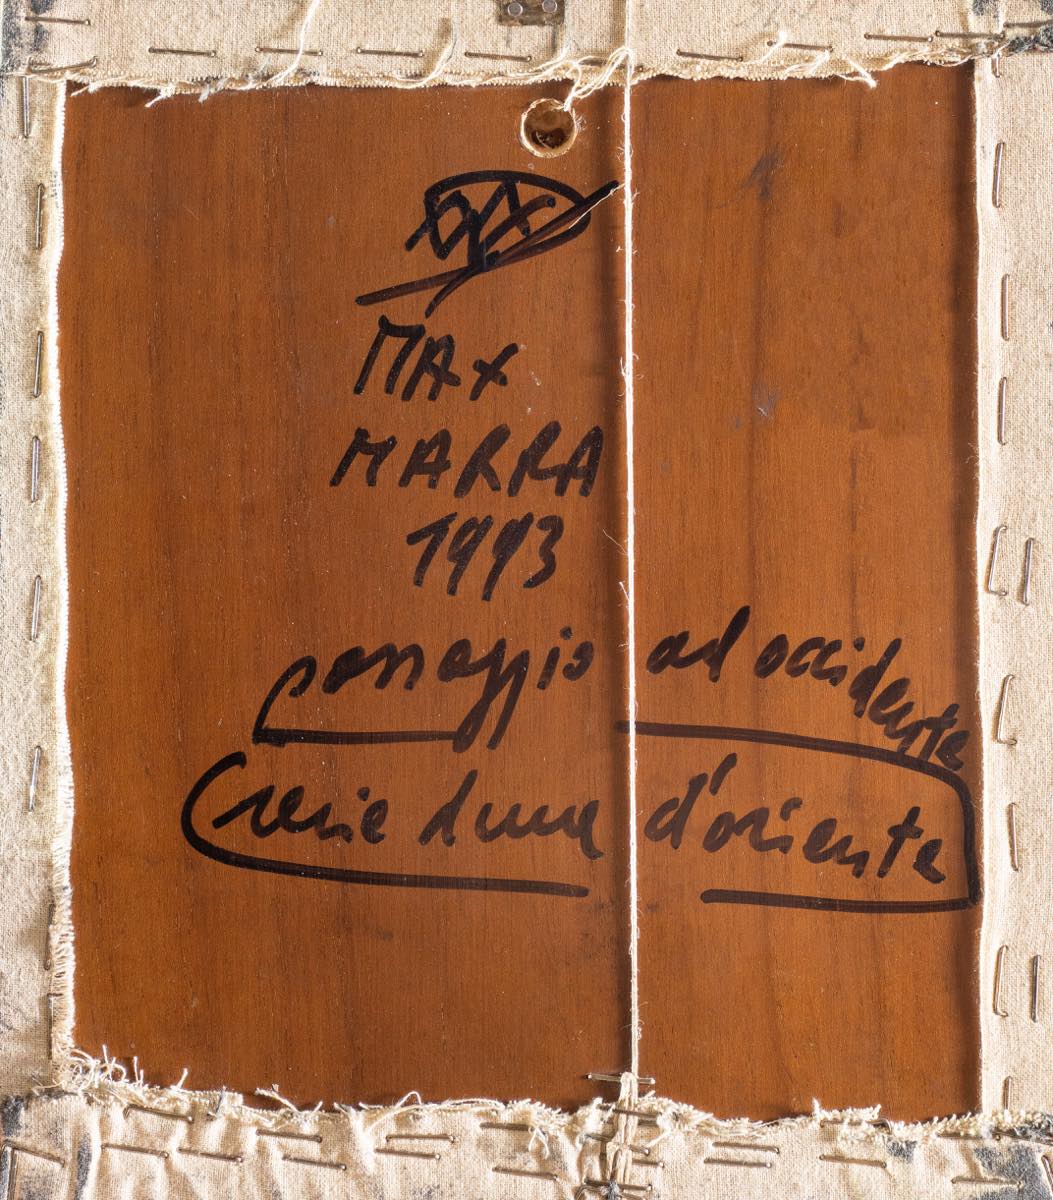 MAX
MARRA
1993
passaggio ad occidente
serie dune d'oriente